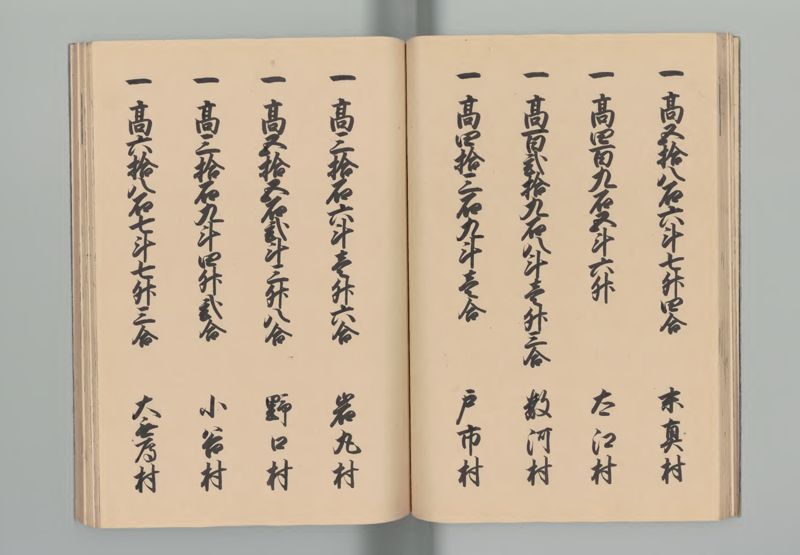 一 高五拾八石六斗七升四合 末真村
一 高四百九石五斗六升 太江村
一 高百弐拾九石八斗壱升三合 数河村
一 高四拾三石九斗壱合 戸市村
一 高三拾石六斗壱升六合 岩丸村
一 高五拾五石弐斗三升八合 野口村
一 高三拾石九斗四升弐合 小谷村
一 高六拾八石七斗七升三合 大無雁村